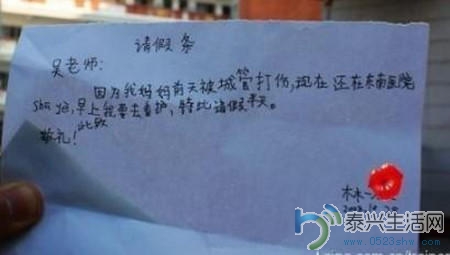 请假条
吴老师:
因为我妈妈前天被城管打伤,现在还在东南医院
shu ye,早上我要去看护,特此请假半天。
此致
敬礼!
林一
泰兴生活网
www.0523shw.com